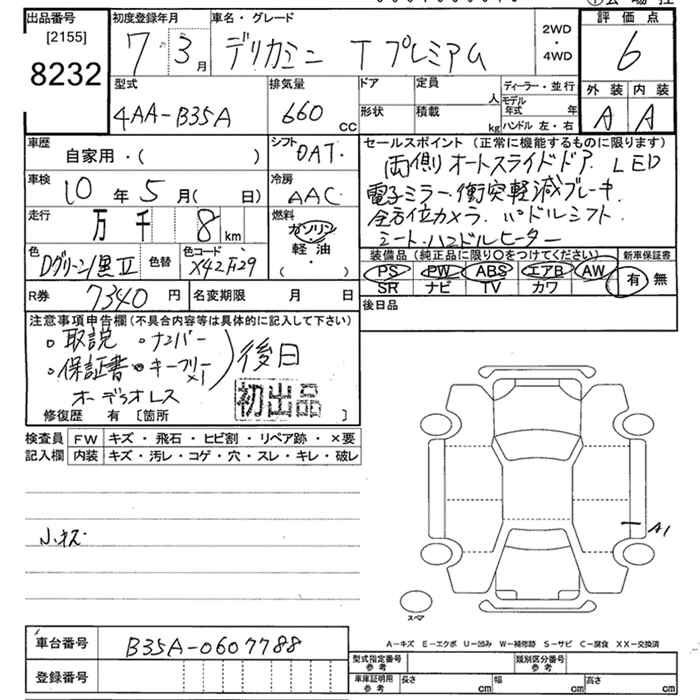 出品番号 初度登録年月 車名・グレード 評価点
[2155]
8232
7 3月 デリカミニ Tプレミアム 2WD・4WD 6
型式 排気量 ドア 定員 ディーラー・並行 外装 内装
4AA-B35A 660 CC 形状 人 積載 kg モデル年式 年 ハンドル 左・右 A A
車歴 シフト セールスポイント(正常に機能するものに限ります)
自家用・( ) OAT. 両側オートスライドドア. LED
車検 冷房 電子ミラー. 衝突軽減ブレーキ.
10年5月(日) AAC 全方位カメラ. パドルシフト.
走行 燃料 シート・ハンドルヒーター
万 千 8 km ガソリン 軽油 ( ・ )
色 色替 色コード 装備品(純正品に限り○をつけてください) 新車保証書
Dグリーン/黒Ⅱ X42 PS PW ABS エアB AW 有 無
SR ナビ TV カワ
R券 7340円 名変期限 月 日 後日品
注意事項申告欄(不具合内容等は具体的に記入して下さい)
。取説 。ナンバー
。保証書 。キーフリー×1 ) 後日
オーディオレス 初出品
修復歴 有 〔箇所 〕
検査員 FW キズ・飛石・ヒビ割・リペア跡・×要
記入欄 内装 キズ・汚レ・コゲ・穴・スレ・キレ・破レ
小キズ
A1
スペア
A-キズ E-エクボ U-凹み W-補修跡 S-サビ C-腐食 XX-交換済
車台番号 B35A-0607788
登録番号
型式指定番号 参考 類別区分番号 参考
車庫証明用 参考 長さ cm 幅 cm 高さ cm